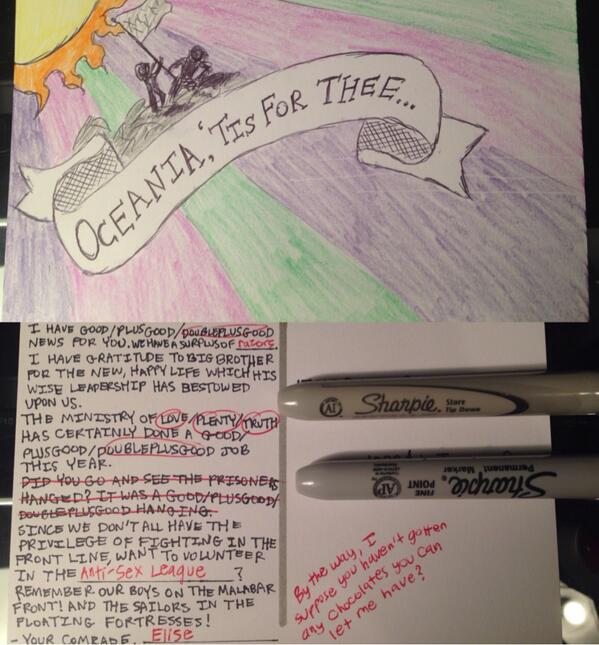 OCEANIA, 'TIS FOR THEE...
I HAVE GOOD/PLUSGOOD/DOUBLEPLUSGOOD
NEWS FOR YOU. WE HAVE A SURPLUS OF razors.
I HAVE GRATITUDE TO BIG BROTHER
FOR THE NEW, HAPPY LIFE WHICH HIS
WISE LEADERSHIP HAS BESTOWED
UPON US.
THE MINISTRY OF LOVE/PLENTY/TRUTH
HAS CERTAINLY DONE A GOOD/
PLUSGOOD/DOUBLEPLUSGOOD JOB
THIS YEAR.
DID YOU GO AND SEE THE PRISONERS
HANGED? IT WAS A GOOD/PLUSGOOD/
DOUBLEPLUSGOOD HANGING.
SINCE WE DON'T ALL HAVE THE
PRIVILEGE OF FIGHTING IN THE
FRONT LINE, WANT TO VOLUNTEER
IN THE Anti-Sex League ?
REMEMBER OUR BOYS ON THE MALABAR
FRONT! AND THE SAILORS IN THE
FLOATING FORTRESSES!
- YOUR COMRADE, Elise
AP
Sharpie.
Store
Tip Down
Sharpie.
Permanent Marker
FINE
POINT
AP
By the way, I
suppose you haven't gotten
any Chocolates you can
let me have?